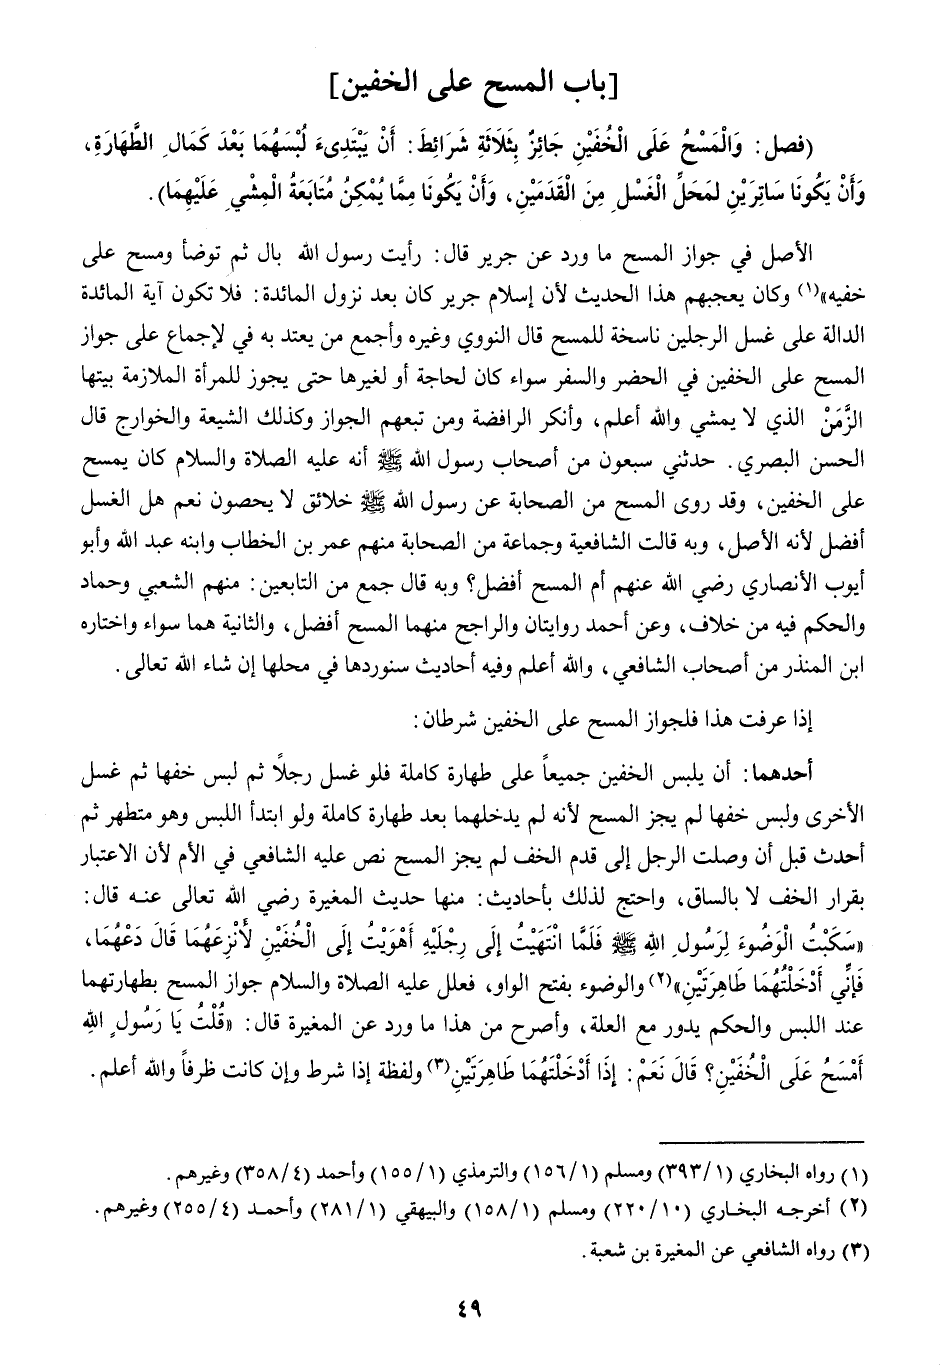 [باب المسح على الخفين]
(فصل: وَالْمَسْحُ عَلَى الْخُفَّيْنِ جَائِزٌ بِثَلَاثَةِ شَرَائِطَ: أَنْ يَبْتَدِىءَ لُبْسَهُمَا بَعْدَ كَمَالِ الطَّهَارَةِ،
وَأَنْ يَكُونَا سَاتِرَيْنِ لمَحَلِّ الْغَسْلِ مِنَ الْقَدَمَيْنِ، وَأَنْ يَكُونَا مِمَّا يُمْكِنُ مُتَابَعَةُ الْمشْيِ عَلَيْهِمَا).
الأصل في جواز المسح ما ورد عن جرير قال: رأيت رسول الله بال ثم توضأ ومسح على
خفيه»(١) وكان يعجبهم هذا الحديث لأن إسلام جرير كان بعد نزول المائدة: فلا تكون آية المائدة
الدالة على غسل الرجلين ناسخة للمسح قال النووي وغيره وأجمع من يعتد به في لإجماع على جواز
المسح على الخفين في الحضر والسفر سواء كان لحاجة أو لغيرها حتى يجوز للمرأة الملازمة بيتها
الزَّمَنْ الذي لا يمشي والله أعلم، وأنكر الرافضة ومن تبعهم الجواز وكذلك الشيعة والخوارج قال
الحسن البصري. حدثني سبعون من أصحاب رسول الله ﷺ أنه عليه الصلاة والسلام كان يمسح
على الخفين، وقد روى المسح من الصحابة عن رسول الله ﷺ خلائق لا يحصون نعم هل الغسل
أفضل لأنه الأصل، وبه قالت الشافعية وجماعة من الصحابة منهم عمر بن الخطاب وابنه عبد الله وأبو
أيوب الأنصاري رضي الله عنهم أم المسح أفضل؟ وبه قال جمع من التابعين: منهم الشعبي وحماد
والحكم فيه من خلاف، وعن أحمد روايتان والراجح منهما المسح أفضل، والثانية هما سواء واختاره
ابن المنذر من أصحاب الشافعي، والله أعلم وفيه أحاديث سنوردها في محلها إن شاء الله تعالى.
إذا عرفت هذا فلجواز المسح على الخفين شرطان:
أحدهما: أن يلبس الخفين جميعاً على طهارة كاملة فلو غسل رجلاً ثم لبس خفها ثم غسل
الأخرى ولبس خفها لم يجز المسح لأنه لم يدخلهما بعد طهارة كاملة ولو ابتدأ اللبس وهو متطهر ثم
أحدث قبل أن وصلت الرجل إلى قدم الخف لم يجز المسح نص عليه الشافعي في الأم لأن الاعتبار
بقرار الخف لا بالساق، واحتج لذلك بأحاديث: منها حديث المغيرة رضي الله تعالى عنه قال:
«سَكَبْتُ الْوَضُوءَ لِرَسُولِ اللهِ ﷺ فَلَمَّا انْتَهَيْتُ إلَى رِجْلَيْهِ أَهْوَيْتُ إلَى الْخُفَّيْنِ لأَنْزِعَهُمَا قَالَ دَعْهُمَا،
فَإِنِّي أَدْخَلْتُهُمَا طَاهِرَتَيْنِ»(٢) والوضوء بفتح الواو، فعلل عليه الصلاة والسلام جواز المسح بطهارتهما
عند اللبس والحكم يدور مع العلة، وأصرح من هذا ما ورد عن المغيرة قال: «قُلْتُ يَا رَسُولَ اللهِ
أَمْسَحُ عَلَى الْخُفَّيْنِ؟ قَالَ نَعَمْ: إِذَا أَدْخَلْتَهُمَا طَاهِرَتَيْنِ(٣) ولفظة إذا شرط وإن كانت ظرفاً والله أعلم.
(١) رواه البخاري (٣٩٣/١) ومسلم (١٥٦/١) والترمذي (١٥٥/١) وأحمد (٣٥٨/٤) وغيرهم.
(٢) أخرجه البخاري (٢٢٠/١٠) ومسلم (١٥٨/١) والبيهقي (٢٨١/١) وأحمد (٢٥٥/٤) وغيرهم.
(٣) رواه الشافعي عن المغيرة بن شعبة.
٤٩